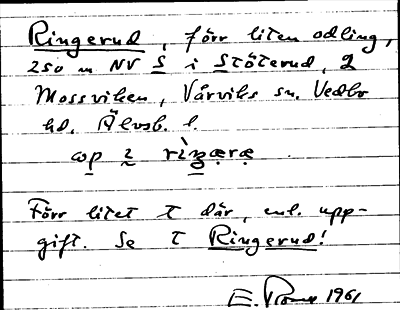 Ringerud, förr liten odling,
250 m NV S i Stöterud, 2
Mossviken, Vårviks sn. Vedbo
hd. Älvsb. l.
rìŋæræ
Förr litet t där, enl. upp-
gift. Se t Ringerud!
E. 1961